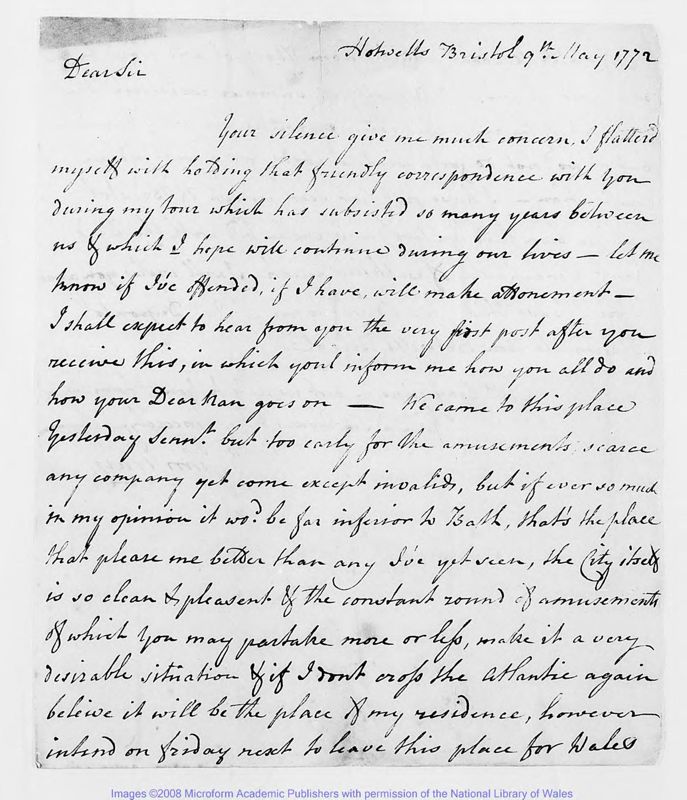 Hotwells Bristol 9th May 1772
Dear Sir
Your silence give me much concern, I flatterd
myself with holding that friendly correspondence with you
during my tour which has subsisted so many years between
us & which I hope will continue during our lives — let me
know if I've offended, if I have, will make attonement —
I shall expect to hear from you the very first post after you
receive this, in which youl inform me how you all do and
how your Dear Nan goes on — We came to this place
Yesterday Sennt. but too early for the amusements, scarce
any company yet come except invalids, but if ever so much
in my opinion it wod. be far inferior to Bath, that's the place
that please me better than any I've yet seen, the City itself
is so clean & pleasent & the constant round of amusements
of which you may partake more or less, make it a very
desirable situation & if I dont cross the Atlantic again
beleive it will be the place of my residence, however
intend on friday next to leave this place for Wales
Images ©2008 Microform Academic Publishers with permission of the National Library of Wales